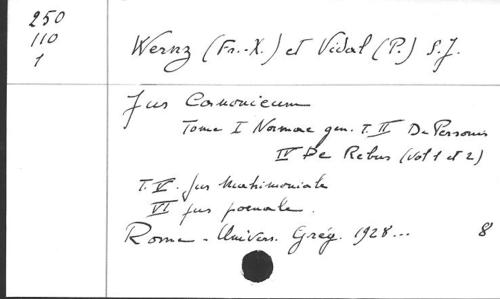 250
110
1
Wernz (Fr.-X.) et Vidal (P.) S.J.
Jus Canonicum
Tome I Normae gen. T. II De Personis
IV De Rebus (Vol 1 et 2)
T. V. jus matrimoniale
VI jus poenale.
Roma - Univers. Grég. 1928... 8